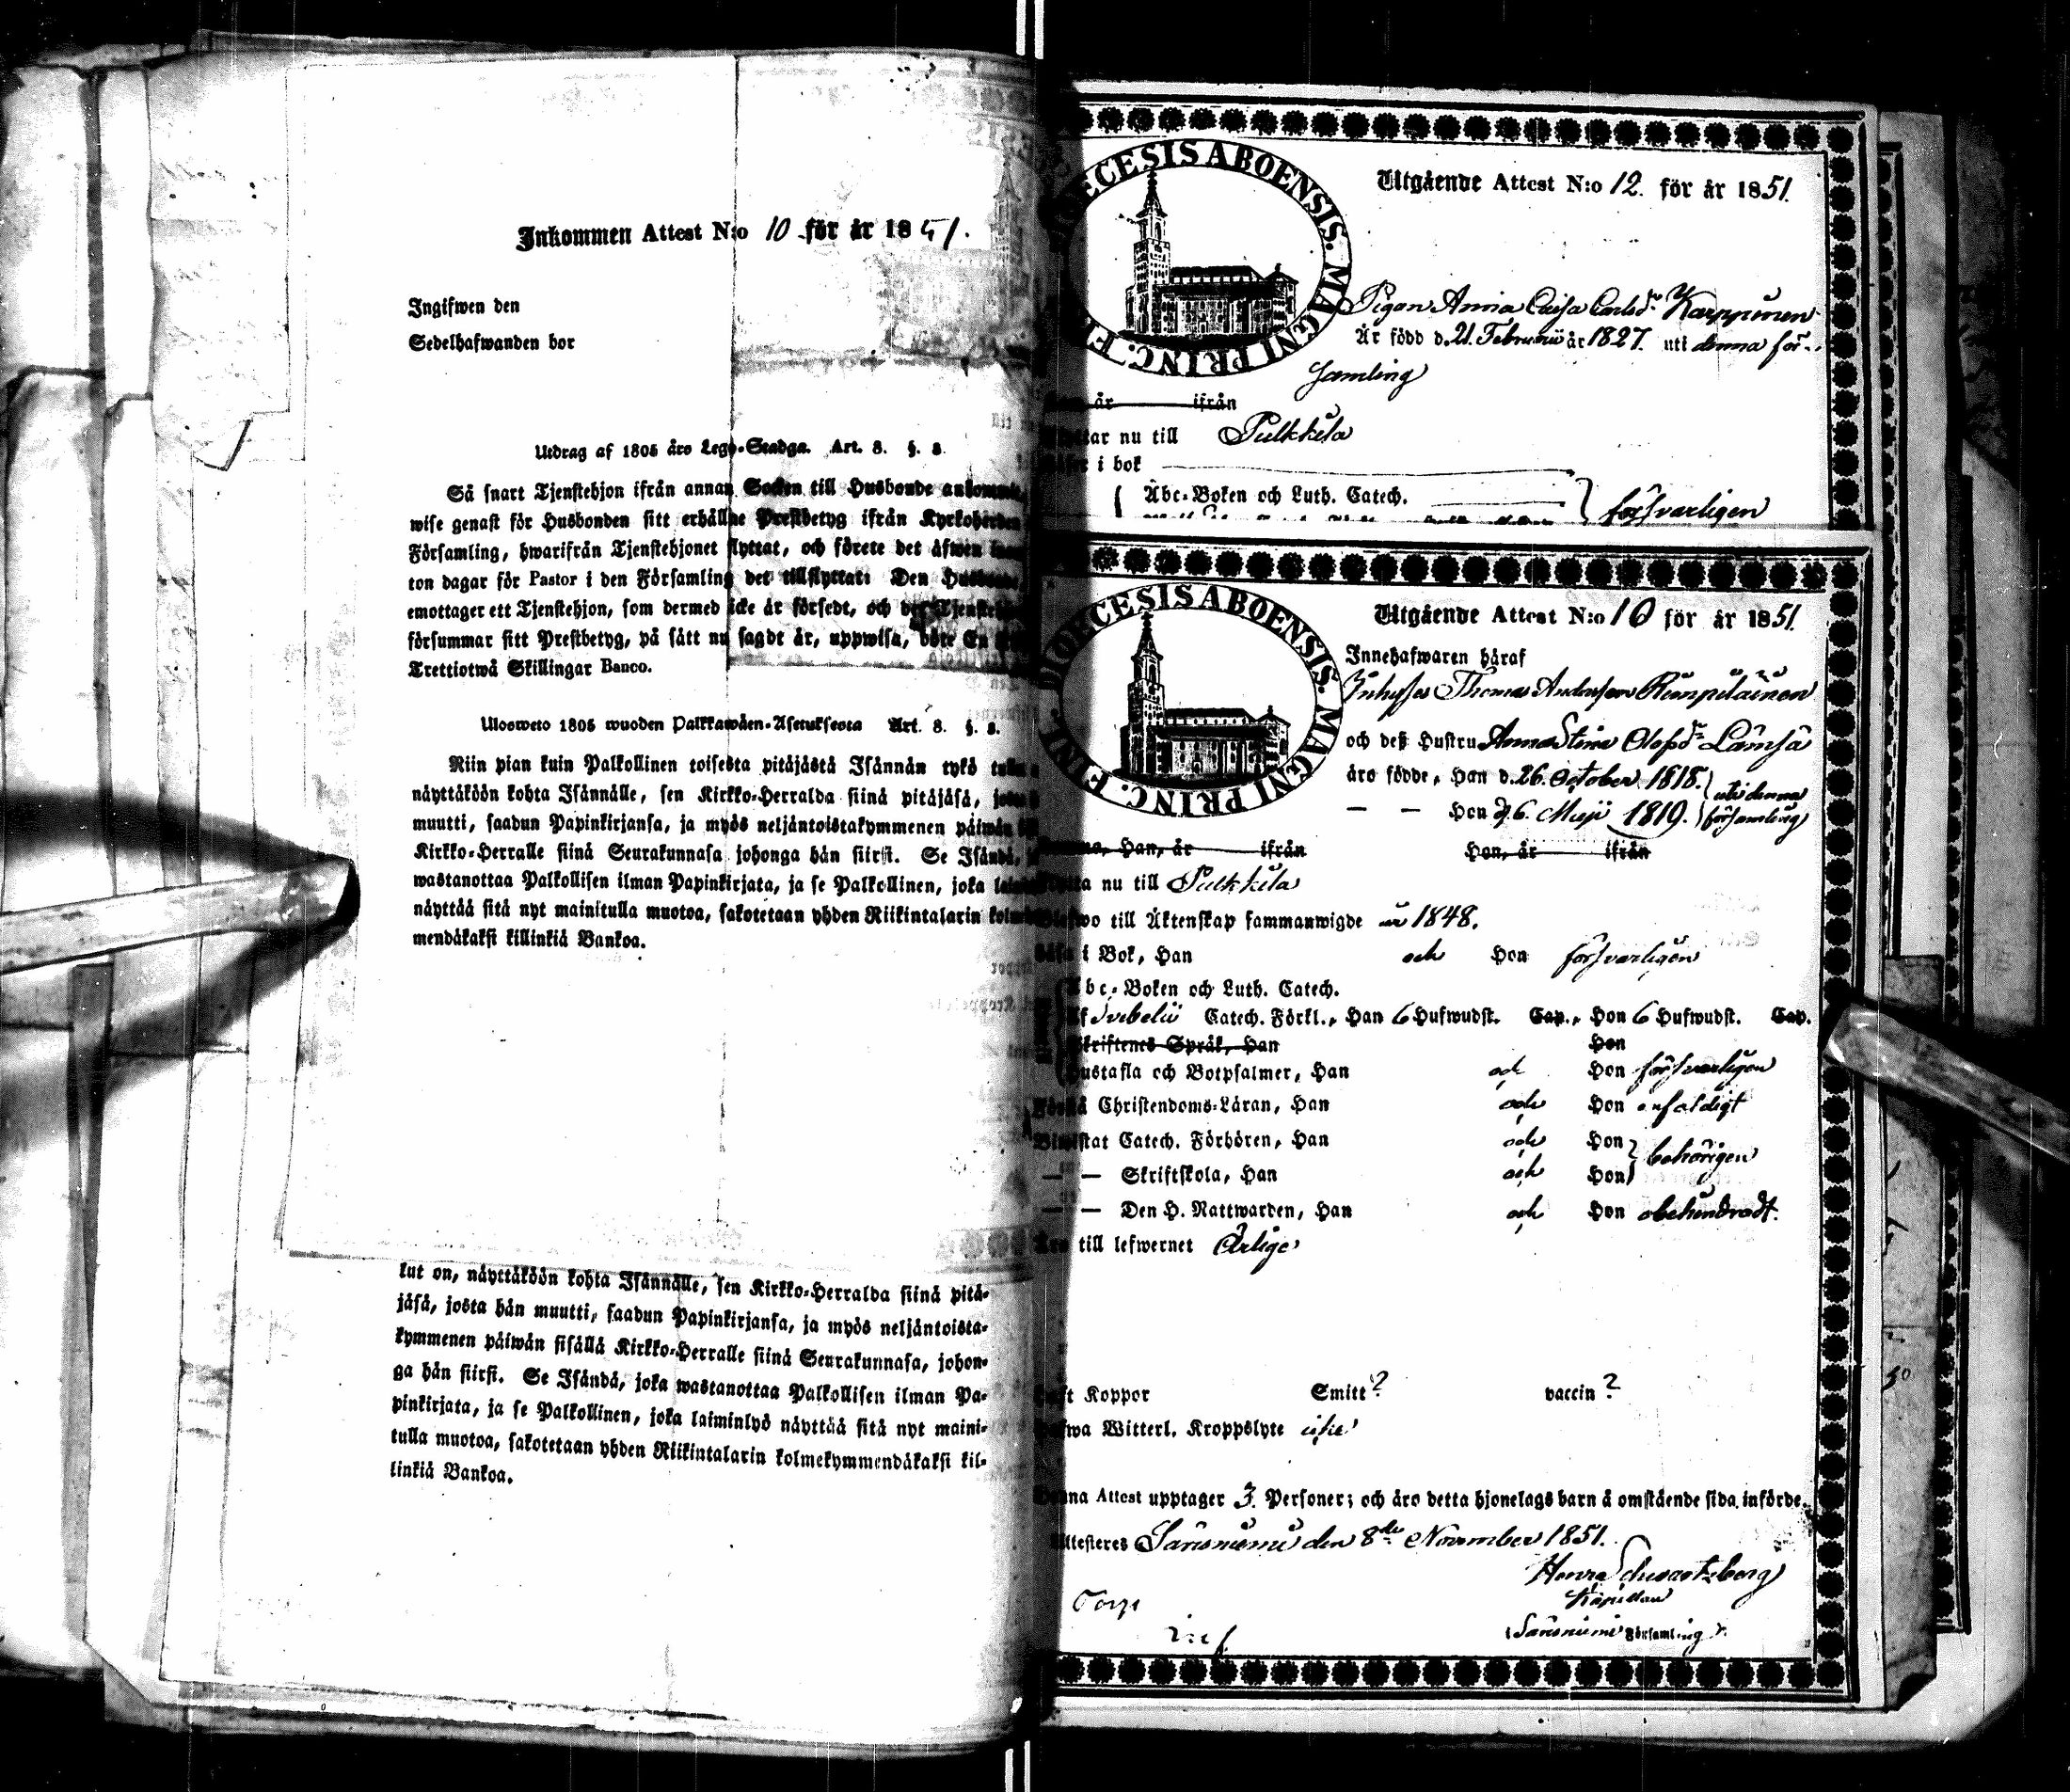 Inkommen Attest N:o 10 för år 1851.
Ingifwen den
Sedelhafwanden bor
Utdrag af 1805 års Lego-Stadga. Art. 8. §. 8.
Så snart Tjenstehjon ifrån annan Socken till Husbonde
wise genast för Husbonden sitt erhållne Prestbetyg ifrån Kyrkoherden
Församling, hwarifrån Tjenstehjonet flyttat, och förete det äfwen
ton dagar för Pastor i den Församling det tillflyttat: Den
emottager ett Tjenstehjon, som dermed icke är försedt, och
försummar sitt Prestbetyg, på sätt nu sagdt är, uppwisa, böte En
Trettiotwå Skillingar Banco.
Ulosweto 1805 wuoden Palkkawäen-Asetuksesta Art. 8. §. 8.
Niin pian kuin Palkollinen toisesta pitäjästä Isännän tykö
näyttäköön kohta Isännälle, sen Kirkko-Herralda siinä pitäjäsä,
muutti, saadun Papinkirjansa, ja myös neljäntoistakymmenen päiwän
Kirkko-Herralle siinä Seurakunnasa johonga hän siirsi. Se Isändä,
wastanottaa Palkollisen ilman Papinkirjata, ja se Palkollinen, joka
näyttää sitä nyt mainitulla muotoa, sakotetaan yhden Riikintalarin
mendäkaksi killinkiä Bankoa.
kut on, näyttäköön kohta Isännälle, sen Kirkko-Herralda siinä pitä-
jäsä, josta hän muutti, saadun Papinkirjansa, ja myös neljäntoista-
kymmenen päiwän sisällä Kirkko-Herralle siinä Seurakunnasa, johon-
ga hän siirsi. Se Isändä, joka wastanottaa Palkollisen ilman Pa-
pinkirjata, ja se Palkollinen, joka laiminlyö näyttää sitä nyt maini-
tulla muotoa, sakotetaan yhden Riikintalarin kolmekymmendäkaksi kil-
linkiä Bankoa.
DIOECESIS ABOENSIS. MAGNI PRINC.
Utgående Attest N:o 12. för år 1851.
Pigan Anna Caisa Carlsdr Karppinen
Är född d. 21. Februarii år 1827. uti denna för-
samling
år ifrån
nu till Pulkkila
i bok
Abc-Boken och Luth. Catech.
försvarligen
DIOECESIS ABOENSIS. MAGNI PRINC.
Utgående Attest N:o 10 för år 1851.
Innehafwaren häraf
Inhyses Thomas Andersson Rumpulainen
och deß Hustru Anna Stina Olofsdr Lämsä
äro födde, Han d. 26. October 1818. uti denna
— — Hon d. 6. Maji 1819. församling
Han, år ifrån Hon, år ifrån
nu till Pulkkila
till Äktenskap sammanwigde år 1848.
i Bok, Han och Hon försvarligen
Abc-Boken och Luth. Catech.
Af Svebelii Catech. Förkl., Han 6 Hufwudst. Cap., Hon 6 Hufwudst. Cap.
Skriftenes Språk, Han Hon
Hustafla och Botpsalmer, Han och Hon försvarligen
Förstå Christendoms-Läran, Han och Hon enfaldigt
Biwistat Catech. Förhören, Han och Hon behörigen
— — Skriftskola, Han och Hon
— — Den H. Nattwarden, Han och Hon obehindradt.
Äro till lefwernet Ärlige
Haft Koppor Smitt? vaccin?
Hafwa Witterl. Kroppslyte icke
Denna Attest upptager 3 Personer; och äro detta hjonelags barn å omstående sida införde.
Attesteres Säräsniemi den 8de November 1851.
Henric Schwartzberg
Kapellan
i Säräsniemi Församling